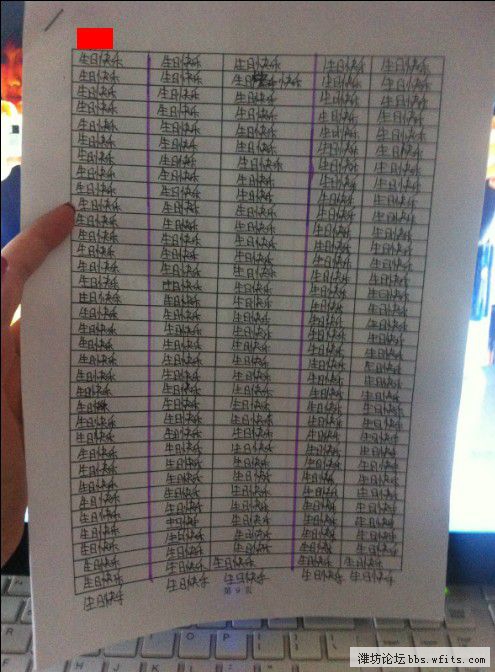 生日快乐 生日快乐 生日快乐 生日快乐 生日快乐
生日快乐 生日快乐 生日快乐 生日快乐 生日快乐
生日快乐 生日快乐 生日快乐 生日快乐 生日快乐
生日快乐 生日快乐 生日快乐 生日快乐 生日快乐
生日快乐 生日快乐 生日快乐 生日快乐 生日快乐
生日快乐 生日快乐 生日快乐 生日快乐 生日快乐
生日快乐 生日快乐 生日快乐 生日快乐 生日快乐
生日快乐 生日快乐 生日快乐 生日快乐 生日快乐
生日快乐 生日快乐 生日快乐 生日快乐 生日快乐
生日快乐 生日快乐 生日快乐 生日快乐 生日快乐
生日快乐 生日快乐 生日快乐 生日快乐 生日快乐
生日快乐 生日快乐 生日快乐 生日快乐 生日快乐
生日快乐 生日快乐 生日快乐 生日快乐 生日快乐
生日快乐 生日快乐 生日快乐 生日快乐 生日快乐
生日快乐 生日快乐 生日快乐 生日快乐 生日快乐
生日快乐 生日快乐 生日快乐 生日快乐 生日快乐
生日快乐 生日快乐 生日快乐 生日快乐 生日快乐
生日快乐 生日快乐 生日快乐 生日快乐 生日快乐
生日快乐 生日快乐 生日快乐 生日快乐 生日快乐
生日快乐 生日快乐 生日快乐 生日快乐 生日快乐
生日快乐 生日快乐 生日快乐 生日快乐 生日快乐
生日快乐 生日快乐 生日快乐 生日快乐 生日快乐
生日快乐 生日快乐 生日快乐 生日快乐 生日快乐
生日快乐 生日快乐 生日快乐 生日快乐 生日快乐
生日快乐 生日快乐 生日快乐 生日快乐 生日快乐
生日快乐 生日快乐 生日快乐 生日快乐 生日快乐
生日快乐 生日快乐 生日快乐 生日快乐 生日快乐
生日快乐 生日快乐 生日快乐 生日快乐 生日快乐
生日快乐 生日快乐 生日快乐 生日快乐 生日快乐
生日快乐 生日快乐 生日快乐 生日快乐 生日快乐
生日快乐 生日快乐 生日快乐 生日快乐 生日快乐
生日快乐 生日快乐 生日快乐 生日快乐 生日快乐
生日快乐 生日快乐 生日快乐 生日快乐 生日快乐
生日快乐 生日快乐 生日快乐 生日快乐 生日快乐
生日快乐
第 9 页
潍坊论坛 bbs.wfits.com